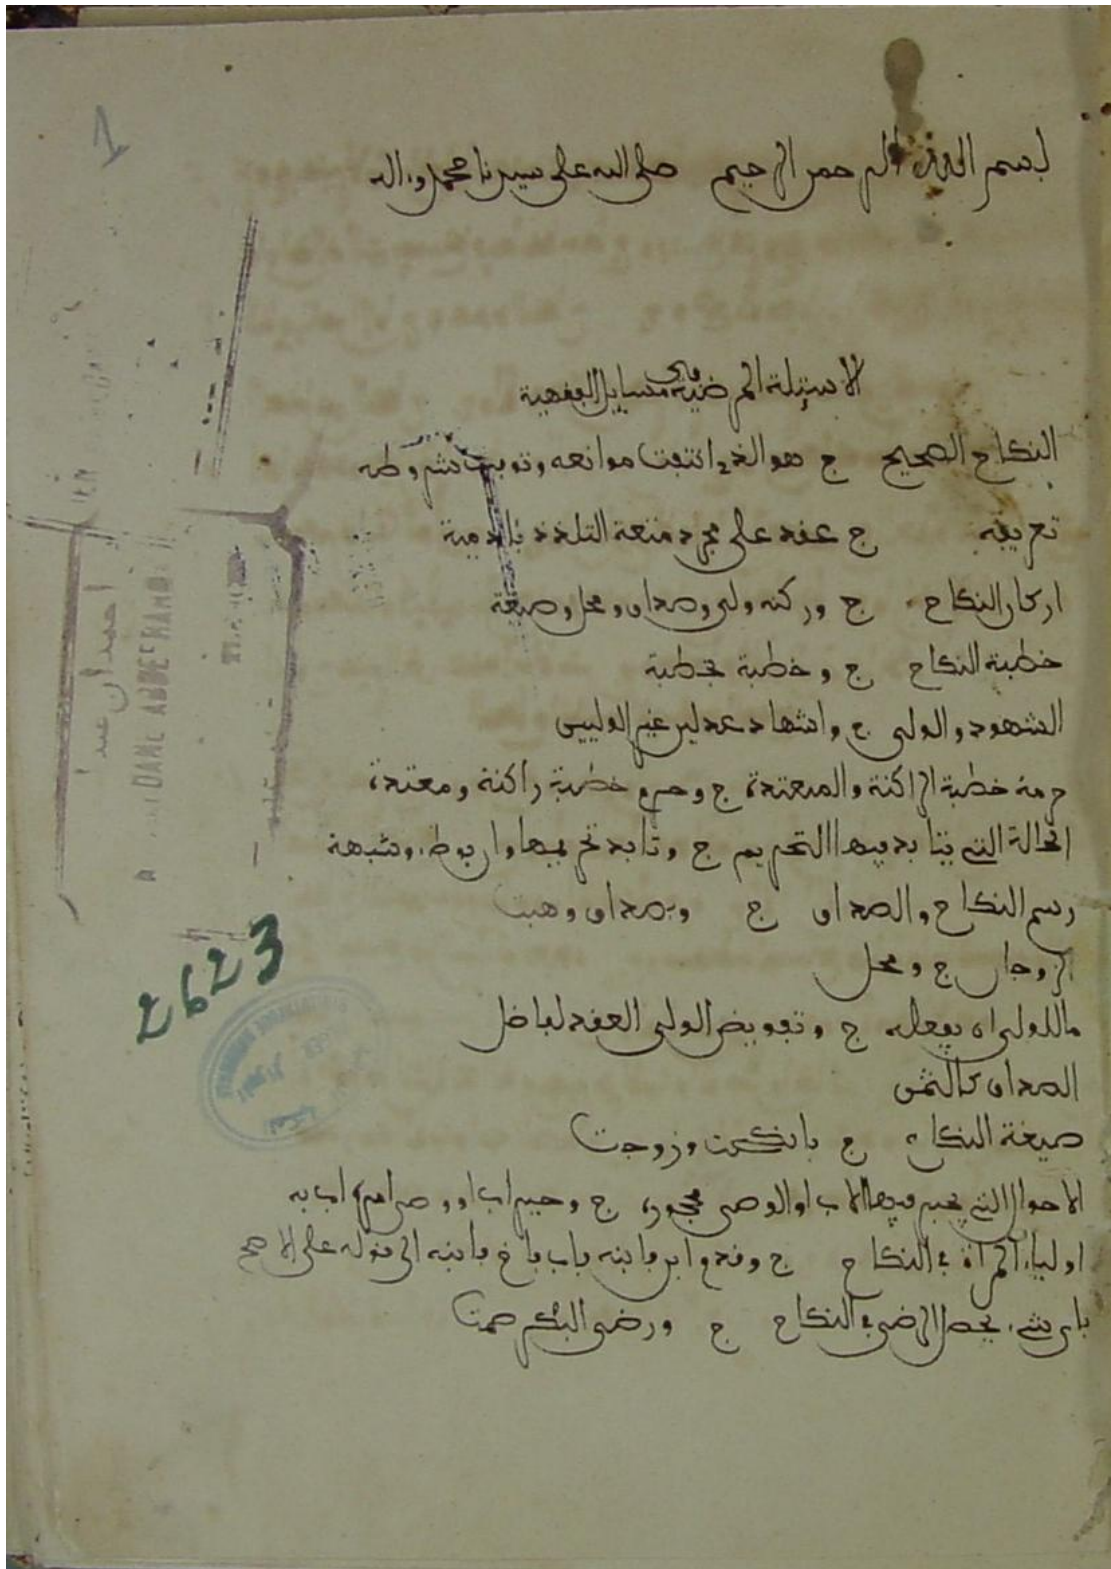 1
بسم الله الرحمن الرحيم صلى الله على سيدنا محمد وءاله
الاسئلة المرضية في مسايل الفقهية
النكاح الصحيح ج هو الذي انتفت موانعه وتوفرت شروطه
تعريفه ج عقد على مجرد متعة التلذذ بادمية
اركان النكاح ج وركنه ولي وصداق ومحل وصيغة
خطبة النكاح ج وخطبة بخطبة
الشهود والولي ج واشهاد عدلين غير الوليين
حرمة خطبة الراكنة والمعتدة ج وحرم خطبة راكنة ومعتدة
الحالة التي يتابد فيها التحريم ج وتابد تحريمها وان بوطء وشبهة
رسم النكاح والصداق ج وبصداق وهبت
الزوجان ج ومحل
ما للولي ان يفعله ج وتفويض الولي العقد لفاضل
الصداق كالثمن
صيغة النكاح ج بانكحت وزوجت
الاحوال التي يجبر فيها الاب او الوصي محجوره ج وجبر اب او وصي امره اب به
اولياء المراة في النكاح ج وقدم ابن فابنه فاب فاخ فابنه الى قوله على الاصح
باي شيء يحصل الرضى في النكاح ج ورضى البكر صمت
احمدان عبد
DAME ABDERRAHMA
2623